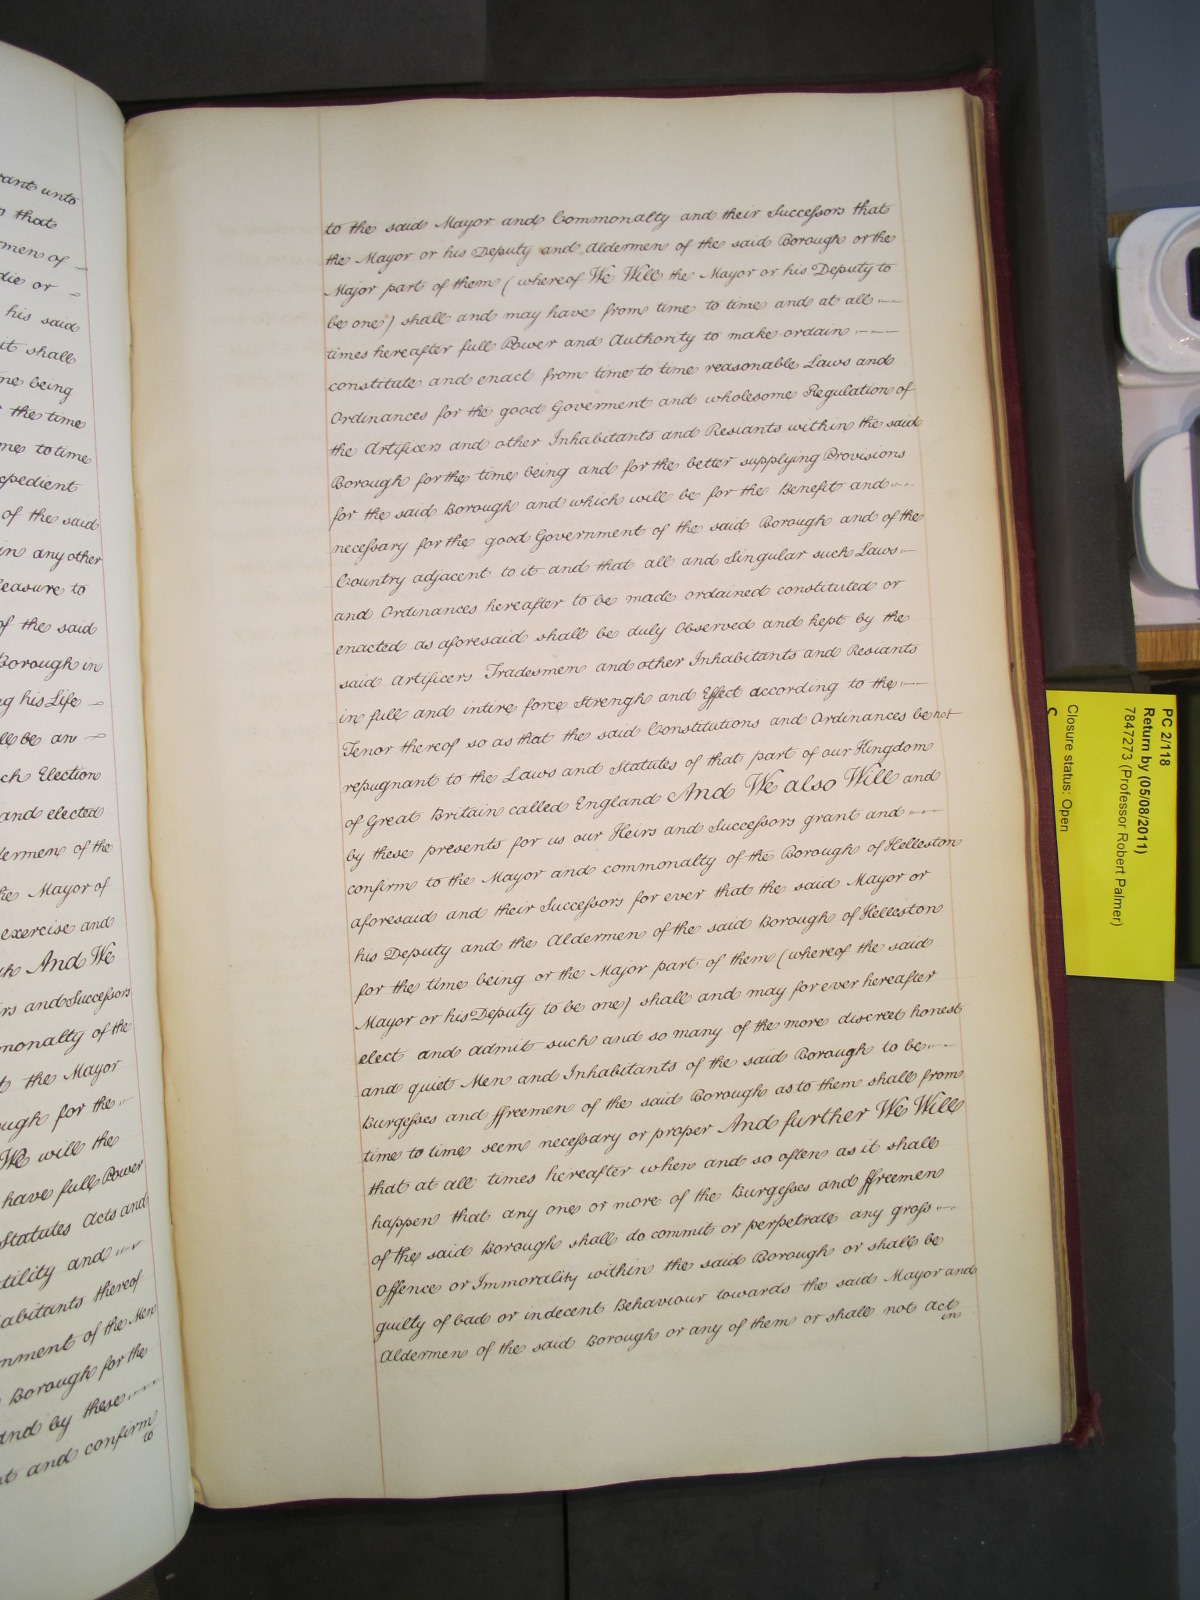 ant unto
that
men of
die or
his said
shall
me being
the time
me to time
xpedient
of the said
in any other
leasure to
of the said
Borough in
his Life
be an
ch Election
and elected
dermen of the
the Mayor of
exercise and
And We
rs and Successors
monalty of the
the Mayor
ugh for the
We will the
have full Power
Statutes Acts and
tility and
abitants thereof
rnment of the Men
Borough for the
and by these
and confirm
to
to the said Mayor and Commonalty and their Successors that
the Mayor or his Deputy and Aldermen of the said Borough or the
Major part of them (whereof We Will the Mayor or his Deputy to
be one) shall and may have from time to time and at all
times hereafter full Power and Authority to make ordain
constitute and enact from time to time reasonable Laws and
Ordinances for the good Goverment and wholesome Regulation of
the Artificers and other Inhabitants and Resiants within the said
Borough for the time being and for the better supplying Provisions
for the said Borough and which will be for the Benefit and
necessary for the good Government of the said Borough and of the
Country adjacent to it and that all and Singular such Laws
and Ordinances hereafter to be made ordained constituted or
enacted as aforesaid shall be duly Observed and kept by the
said Artificers Tradesmen and other Inhabitants and Resiants
in full and intire force Strengh and Effect according to the
Tenor thereof so as that the said Constitutions and Ordinances be not
repugnant to the Laws and Statutes of that part of our Kingdom
of Great Britain called England And We also Will and
by these presents for us our Heirs and Successors grant and
confirm to the Mayor and commonalty of the Borough of Helleston
aforesaid and their Successors for ever that the said Mayor or
his Deputy and the Aldermen of the said Borough of Helleston
for the time being or the Major part of them (whereof the said
Mayor or his Deputy to be one) shall and may for ever hereafter
elect and admit such and so many of the more discreet honest
and quiet Men and Inhabitants of the said Borough to be
Burgesses and ffreemen of the said Borough as to them shall from
time to time seem necessary or proper And further We Will
that at all times hereafter when and so often as it shall
happen that any one or more of the Burgesses and ffreemen
of the said Borough shall do commit or perpetrate any gross
Offence or Immorality within the said Borough or shall be
guilty of bad or indecent Behaviour towards the said Mayor and
Aldermen of the said Borough or any of them or shall not act
in
PC 2/118
Return by (05/08/2011)
7847273 (Professor Robert Palmer)
Closure status: Open